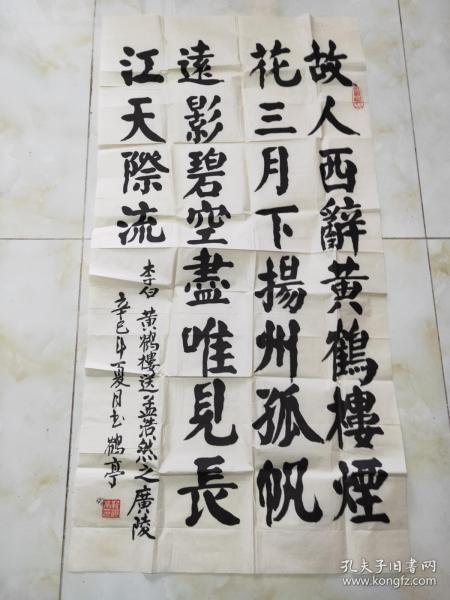 故人西辭黃鶴樓煙
花三月下揚州孤帆
遠影碧空盡唯見長
江天際流
李白 黃鶴樓送孟浩然之廣陵
辛巳年夏月書 鶴亭
孔夫子旧书网
www.kongfz.com